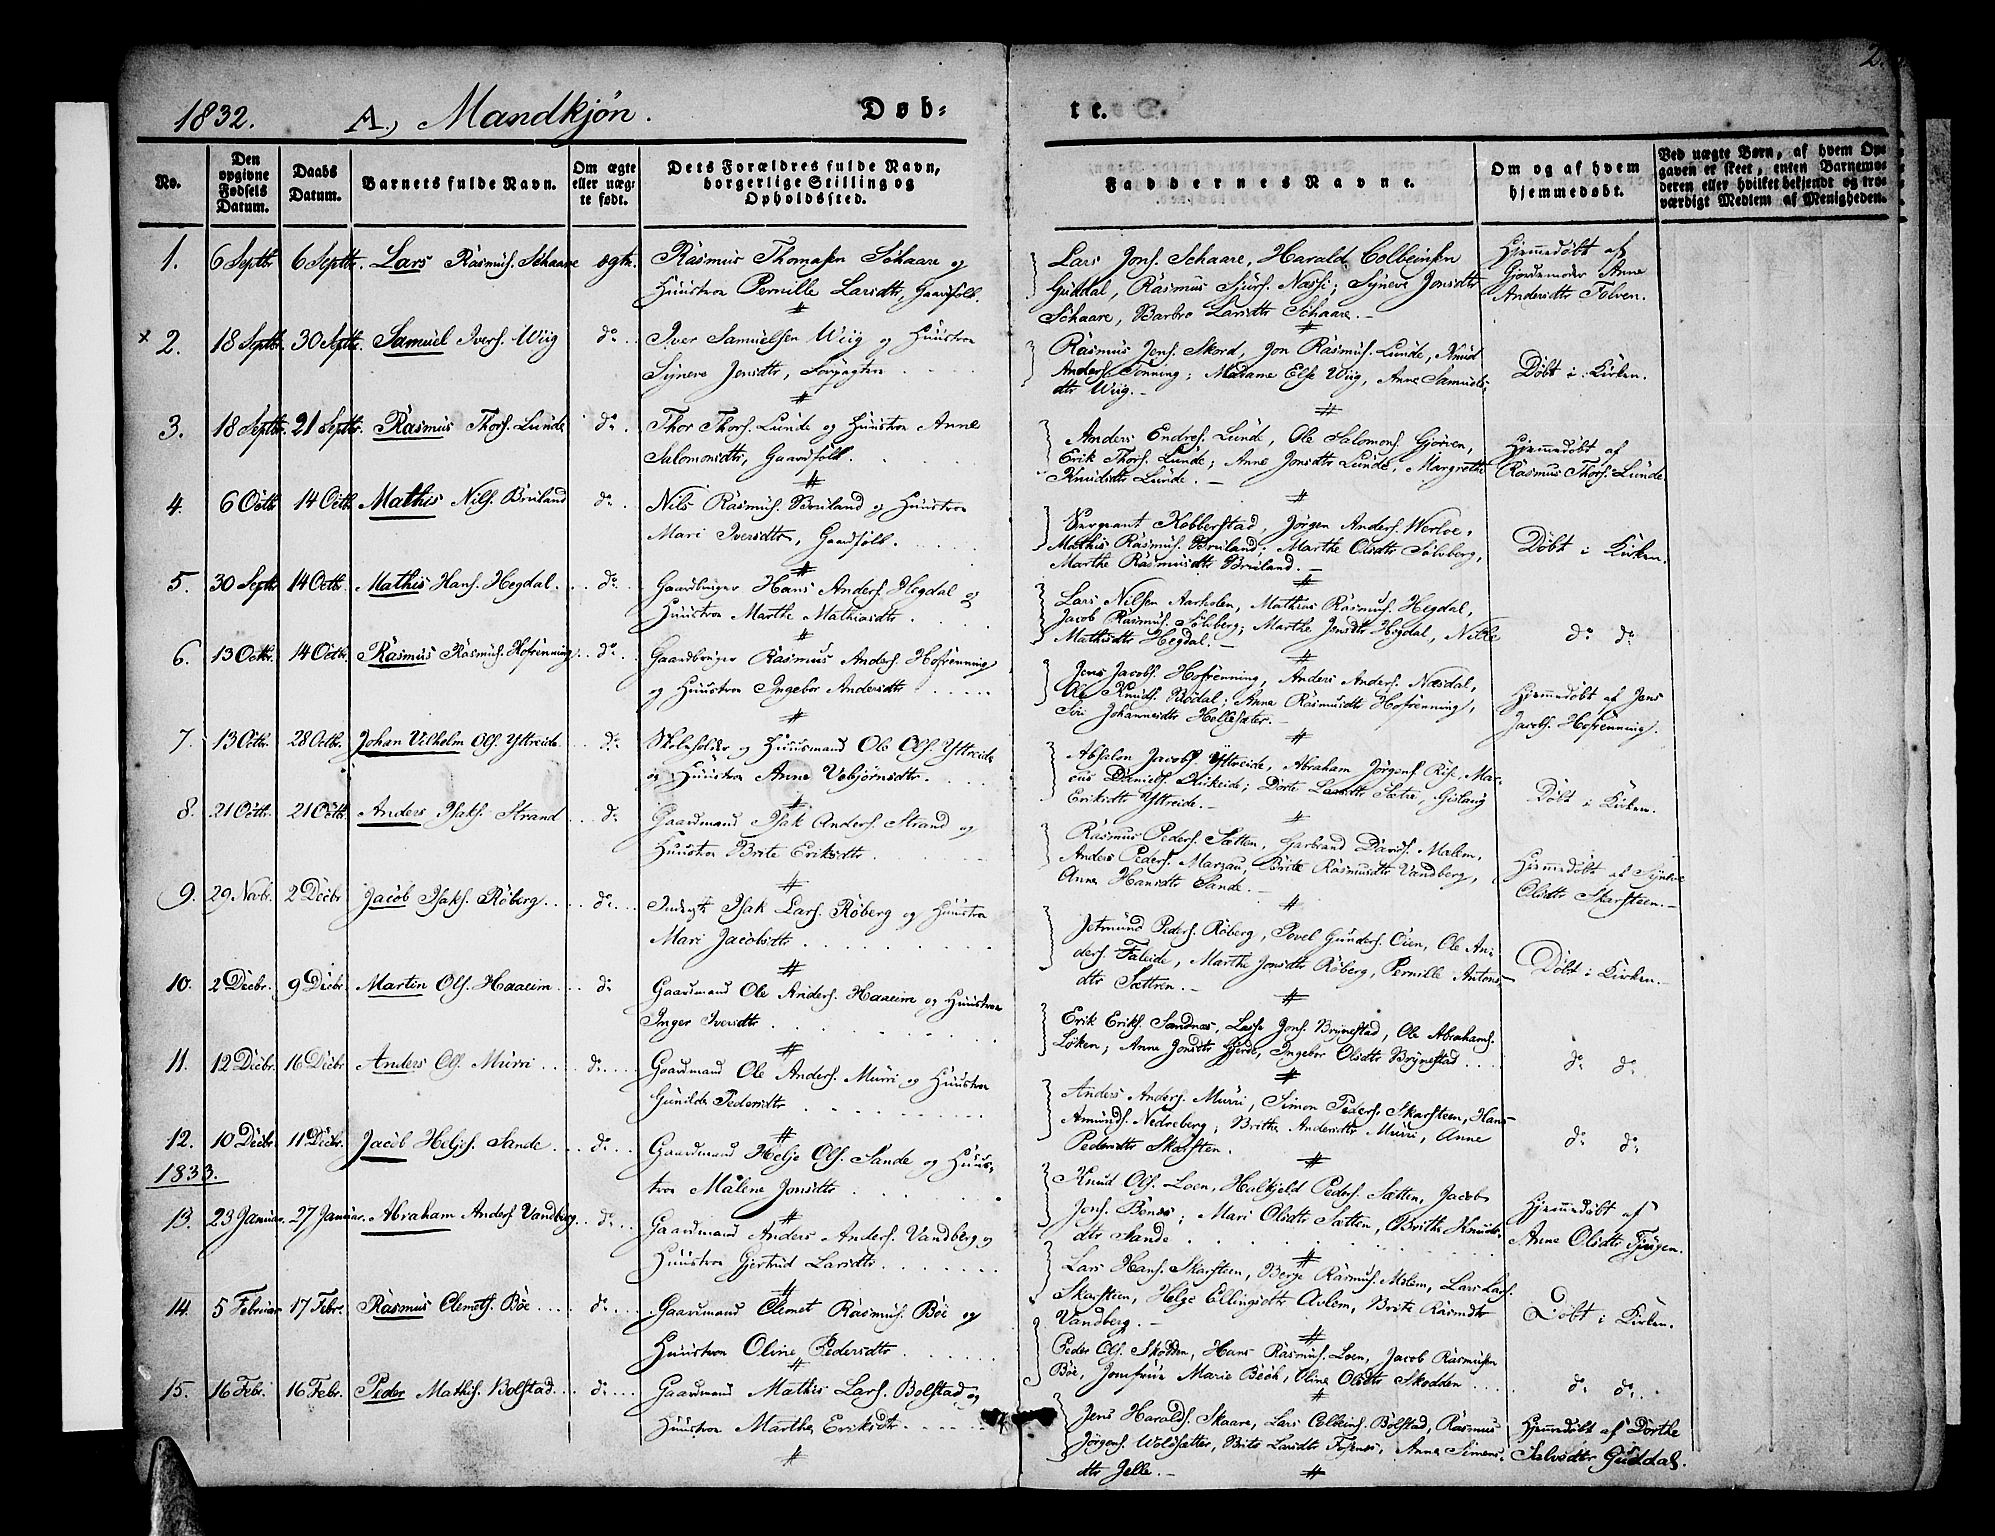 1832. A, Mandkjön. Døb-
te. 2.
No.
Den opgivne Fødsels Datum.
Daabs Datum.
Barnets fulde Navn.
Om ægte eller uægte født.
Dets Forældres fulde Navn, borgerlige Stilling og Opholdssted.
Faddernes Navne.
Om og af hvem hjemmedøbt.
Ved uægte Børn, af hvem Opgaven er skeet, enten Barnemoderen eller hvilket bekjendt og troværdigt Medlem af Menigheden.
1. 6 Septbr. 6 Septbr. Lars Rasmus. Schaare ægte. Rasmus Thomasen Schaare og
Huustroe Pernille Larsdtr, Gaardfolk.
Lars Jons. Schaare, Harald Colbeinsen
Guddal, Rasmus Sjurs. Nasse; Synneve Jonsdtr
Schaare, Barbro Larsdtr Schaare.
Hjemmedøbt af
Gjordemoder Anne
Andersdtr Tolven.
x 2. 18 Septbr. 30 Septbr. Samuel Ivers. Wiig do Iver Samuelsen Wiig og Huustroe
Synneve Jensdtr,
Rasmus Jens. Skord, Jon Rasmus. Lunde, Knud
Anders. Tonning; Madame Else Wiig, Anne Samuels-
dtr Wiig.
Døbt i Kirken.
3. 18 Septbr. 21 Septbr. Rasmus Thors. Lunde do Thor Thors. Lunde og Huustroe Anne
Salomonsdtr, Gaardfolk.
Anders Endres. Lunde, Ole Salomons. Gjörven,
Erik Thors. Lunde; Anne Jonsdtr Lunde, Margrethe
Knudsdtr Lunde.
Hjemmedøbt af
Rasmus Thors. Lunde.
4. 6 Octbr. 14 Octbr. Mathis Nils. Bruland do Nils Rasmus. Bruland og Huustroe
Mari Iversdtr, Gaardfolk.
Sergeant Kobberstad, Jörgen Anders. Werloe,
Mathis Rasmus. Bruland; Marthe Olsdtr Sölvberg,
Marthe Rasmusdtr Bruland.
Døbt i Kirken.
5. 30 Septbr 14 Octbr. Mathis Hans. Hegdal do Gaardbruger Hans Anders. Hegdal og
Huustroe Marthe Mathiasdtr
Lars Nilsen Aarholen, Mathias Rasmus. Hegdal,
Jacob Rasmus. Sölvberg; Marthe Jensdtr Hegdal, Nille
Mathisdtr Hegdal.
do do
6. 13 Octbr. 14 Octbr. Rasmus Rasmus. Hofrenning do Gaardbruger Rasmus Anders. Hofrenning
og Huustroe Ingebor Andersdtr
Jens Jacobs. Hofrenning, Anders Anders. Næsdal,
Ole Knuds. Bödal; Anne Rasmusdtr Hofrenning,
Siri Johannesdtr Hellesæter.
Hjemmedøbt af Jens
Jacobs. Hofrenning.
7. 13 Octbr. 28 Octbr. Johan Vilhelm Ols. Yttreide do Skoleholder og Huusmand Ole Ols. Yttreide
og Huustroe Anne Vebjørnsdtr.
Absalon Jacobs. Yttreide, Abraham Jörgens. Riise, Mar-
cus Daniels. Aarkeide; Dorte Larsdtr Sætre, Gislaug
Eriksdtr Yttreide.
Døbt i Kirken.
8. 21 Octbr. 21 Octbr. Anders Isaks. Strand do Gaardmand Isak Anders. Strand og
Huustroe Brite Eriksdtr.
Rasmus Peders. Sætten, Garbrand Davids. Malem,
Anders Peders. Marzau, Brite Rasmusdtr Vandberg,
Anne Hansdtr Sande.
Hjemmedøbt af Synneve
Olsdtr Skarsteen.
9. 29 Novbr. 2 Decbr Jacob Isaks. Röberg do Inderst Isak Lars. Röberg og Huustroe
Mari Jacobsdtr
Jetmund Peders. Röberg, Povel Gunders. Öien, Ole An-
ders. Faleide, Marthe Jonsdtr Röberg, Pernille Antons-
dtr Sættren.
Døbt i Kirken.
10. 2 Decbr. 9 Decbr Martin Ols. Haaeim do Gaardmand Ole Anders. Haaeim og Huustroe
Inger Iversdtr
Erik Eriks. Sandnes, Lasse Jons. Brynestad, Ole Abrahams.
Löken; Anne Jonsdtr Gjerde, Ingebor Olsdtr Brynestad
do do
11. 12 Decbr. 16 Decbr Anders Ols. Murri do Gaardmand Ole Anders. Murri og Huustroe
Gunilde Pedersdtr
Anders Anders. Murri, Simon Peders. Skarsteen, Hans
Amunds. Nedreberg; Brithe Andersdtr Murri, Anne
Pedersdtr Skarsten.
do do
12. 10 Decbr. 11 Decbr. Jacob Heljes. Sande do Gaardmand Helje Ols. Sande og Huus-
troe Malene Jonsdtr
Knud Ols. Loen, Hulkjeld Peders. Sætten, Jacob
Jens. Bönes; Mari Olsdtr Sætten, Brithe Knuds-
dtr Sande
Hjemmedøbt af
Anne Olsdtr Tjugen.
1833.
13. 23 Januar. 27 Januar. Abraham Anders. Vandberg do Gaardmand Anders Anders. Vandberg og
Huustroe Gjertrud Larsdtr
Lars Hans. Skarsteen, Berge Rasmus. Molem, Lars Lars.
Skarsteen, Helge Ellingsdtr Avlem, Brite Rasmdtr
Vandberg.
Döbt i Kirken.
14. 5 Februar 17 Febr. Rasmus Clemets. Böe do Gaardmand Clemet Rasmus. Böe og
Huustroe Oline Pedersdtr
Peder Ols. Skodden, Hans Rasmus. Loen, Jacob Rasmusen
Böe, Jomfrue Marie Bech, Oline Olsdtr Skodden
do do
15. 16 Febr. 16 Febr. Peder Mathis. Bolstad do Gaardmand Mathis Lars. Bolstad og
Huustroe Marthe Eriksdtr
Jens Haralds. Skaare, Lars Colbeins. Bolstad, Rasmus
Jörgens. Woldsætter, Brite Larsdtr Fosnes, Anne Simens-
dtr Jelle.
Hjemmedøbt af Dorthe
Salvesdtr Guddal.